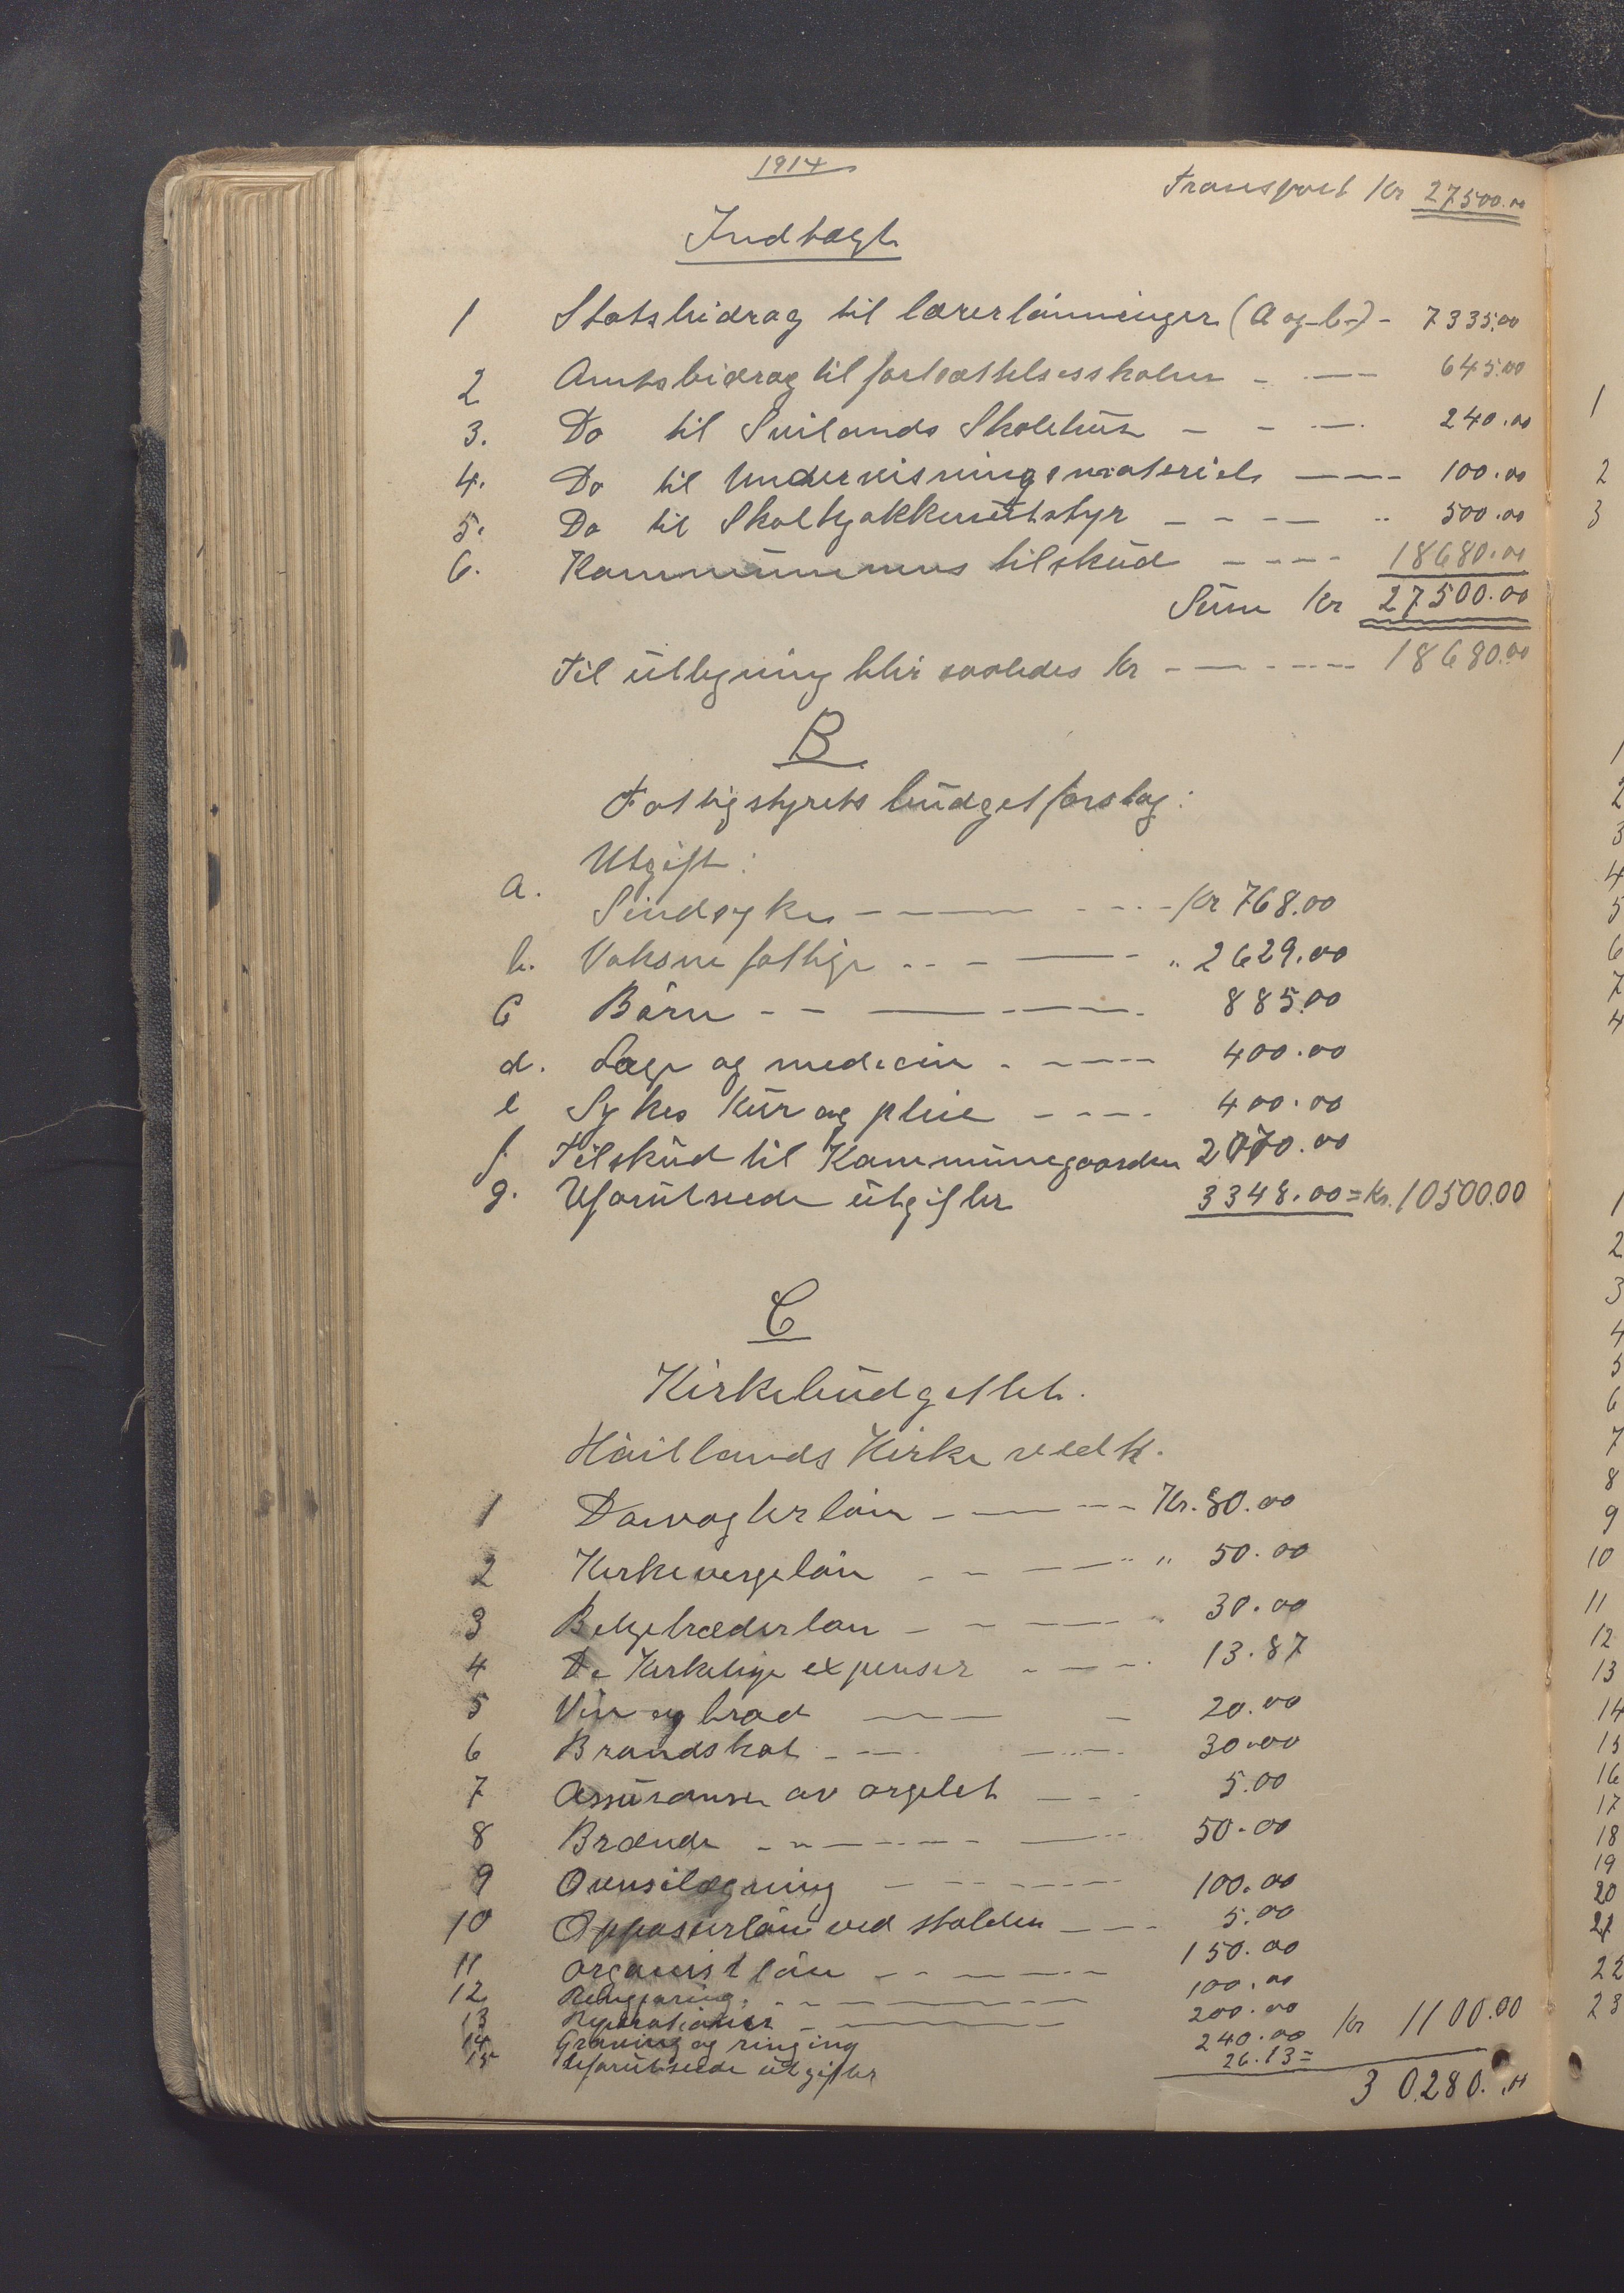 1914
Transport Kr 27500.00
Indtægt
1 Statsbidrag til lærerlønninger (A og b) - 7335.00
2 Amtsbidrag til fortsættelsesskolen - 645.00
3. Do til Svilands Skolehus - 240.00
4. Do til Undervisningsmateriel - 100.00
5. Do til Skolekjøkkenutstyr - " 500.00
6. Kommunens tilskud - 18680.00
Sum Kr 27500.00
Til utligning blir saaledes Kr - 18680.00
B
Fattigstyrets budgetforslag:
Utgift:
a. Sindsyke - Kr 768.00
b. Voksne fattige - " 2629.00
c Børn - 885.00
d. Læge og medicin - 400.00
e Sykes Kur og pleie - 400.00
f. Tilskud til Kommunegaarden 2070.00
g. Uforutseede utgifter 3348.00 = Kr. 10500.00
C
Kirkebudgettet.
Høilands Kirke vedk.
1 Kr. 80.00
2 Kirkevergeløn - " 50.00
3 Belgetræderløn - 30.00
4 De Kirkelige expenser - 13.87
5 Vin og brød - 20.00
6 Brandskat - 30.00
7 Assuranse av orgelet - 5.00
8 Brænde - 50.00
9 Ovnsilægning - 100.00
10 Oppasserløn ved stalden - 5.00
11 Organistløn - 150.00
12 Rengjøring. - 100.00
13 Reparationer - 200.00
14 Graving og ringing 240.00 Kr 1100.00
15 Uforutseede utgifter 26.13 =
30280.00
1
2
3
1
2
3
4
5
6
7
4
1
2
3
4
5
6
7
8
9
10
11
12
13
14
15
16
17
18
19
20
21
22
23